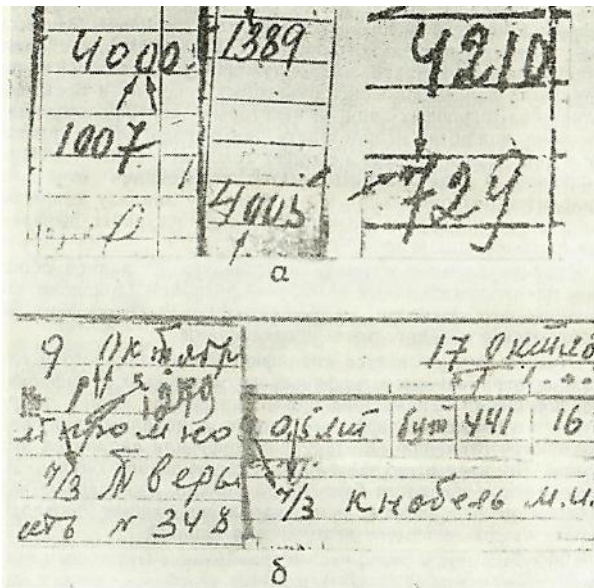 4000
1007
1389
4005
4210
729
а
9 Октябр
1279
мкромко
ч/з Тверь
сть № 348
17 Октяб
0,5 лит бут 441 16
ч/з Кнобель М.И.
б